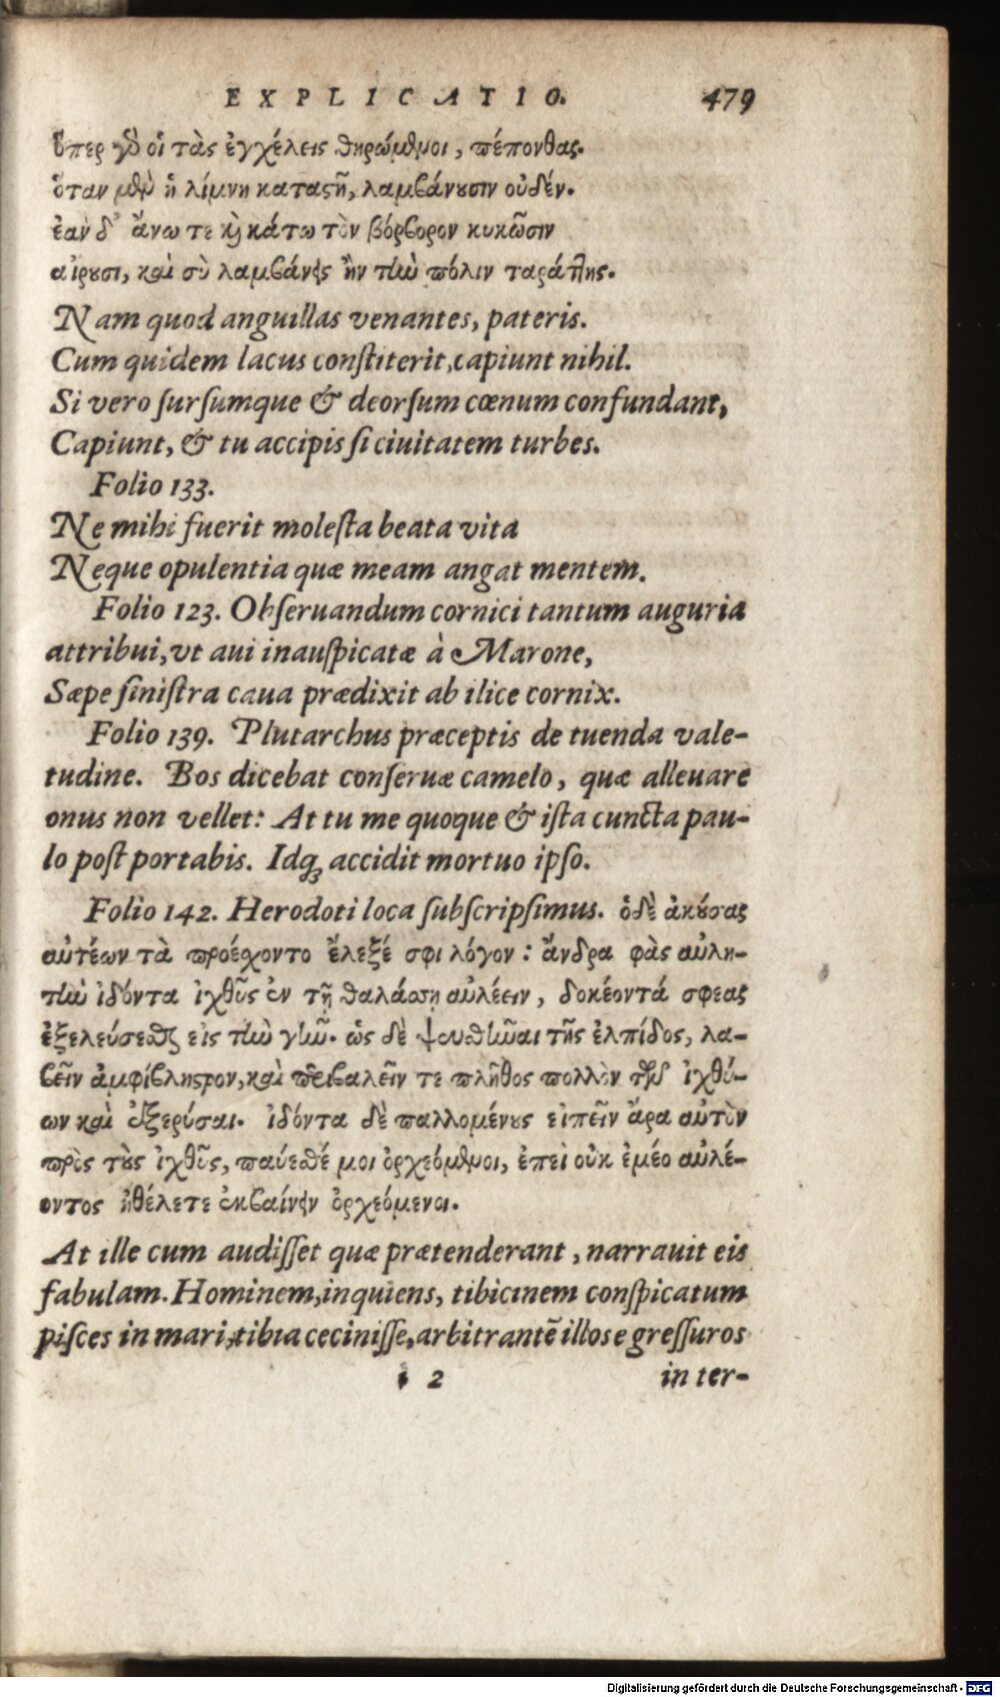 EXPLICATIO. 479
ὅπερ γὸ οἱ τὰς ἐγχέλεις θηρώμενοι, πέπονθας.
ὅταν μὲν ἡ λίμνη καταςῇ, λαμβάνουσιν οὐδέν.
ἐὰν δ' ἄνω τε καὶ κάτω τὸν βόρβορον κυκῶσιν
αἱρουσι, καὶ σὺ λαμβάνεις ἢν τὴν πόλιν ταράττης.
Nam quod anguillas venantes, pateris.
Cum quidem lacus conſtiterit, capiunt nihil.
Si vero ſurſumque & deorſum cœnum confundant,
Capiunt, & tu accipis ſi ciuitatem turbes.
Folio 133.
Ne mihi fuerit moleſta beata vita
Neque opulentia quæ meam angat mentem.
Folio 123. Obſeruandum cornici tantum auguria
attribui, vt aui inauſpicatæ à Marone,
Sæpe ſiniſtra caua prædixit ab ilice cornix.
Folio 139. Plutarchus præceptis de tuenda vale-
tudine. Bos dicebat conſeruæ camelo, quæ alleuare
onus non vellet: At tu me quoque & iſta cuncta pau-
lo poſt portabis. Idq; accidit mortuo ipſo.
Folio 142. Herodoti loca ſubſcripſimus. ὁδὲ ἀκούσας
αὐτέων τὰ προέχοντο ἔλεξέ σφι λόγον: ἄνδρα φὰς αὐλη-
τὴν ἰδόντα ἰχθῦς ἐν τῇ θαλάσσῃ αὐλέειν, δοκέοντά σφεας
ἐξελεύσεσθαι εἰς τὴν γῆν. ὡς δὲ ψευσθῆναι τῆς ἐλπίδος, λα-
βεῖν ἀμφίβληστρον, καὶ περιβαλεῖν τε πλῆθος πολλὸν τῶν ἰχθύ-
ων καὶ ἐξερύσαι. ἰδόντα δὲ παλλομένους εἰπεῖν ἄρα αὐτὸν
πρὸς τοὺς ἰχθῦς, παύεσθέ μοι ὀρχεόμενοι, ἐπεὶ οὐκ ἐμέο αὐλέ-
οντος ἠθέλετε ἐκβαίνειν ὀρχεόμενοι.
At ille cum audiſſet quæ prætenderant, narrauit eis
fabulam. Hominem, inquiens, tibicinem conſpicatum
piſces in mari, tibia ceciniſſe, arbitrantẽ illos egreſſuros
i 2 in ter-
Digitalisierung gefördert durch die Deutsche Forschungsgemeinschaft - DFG